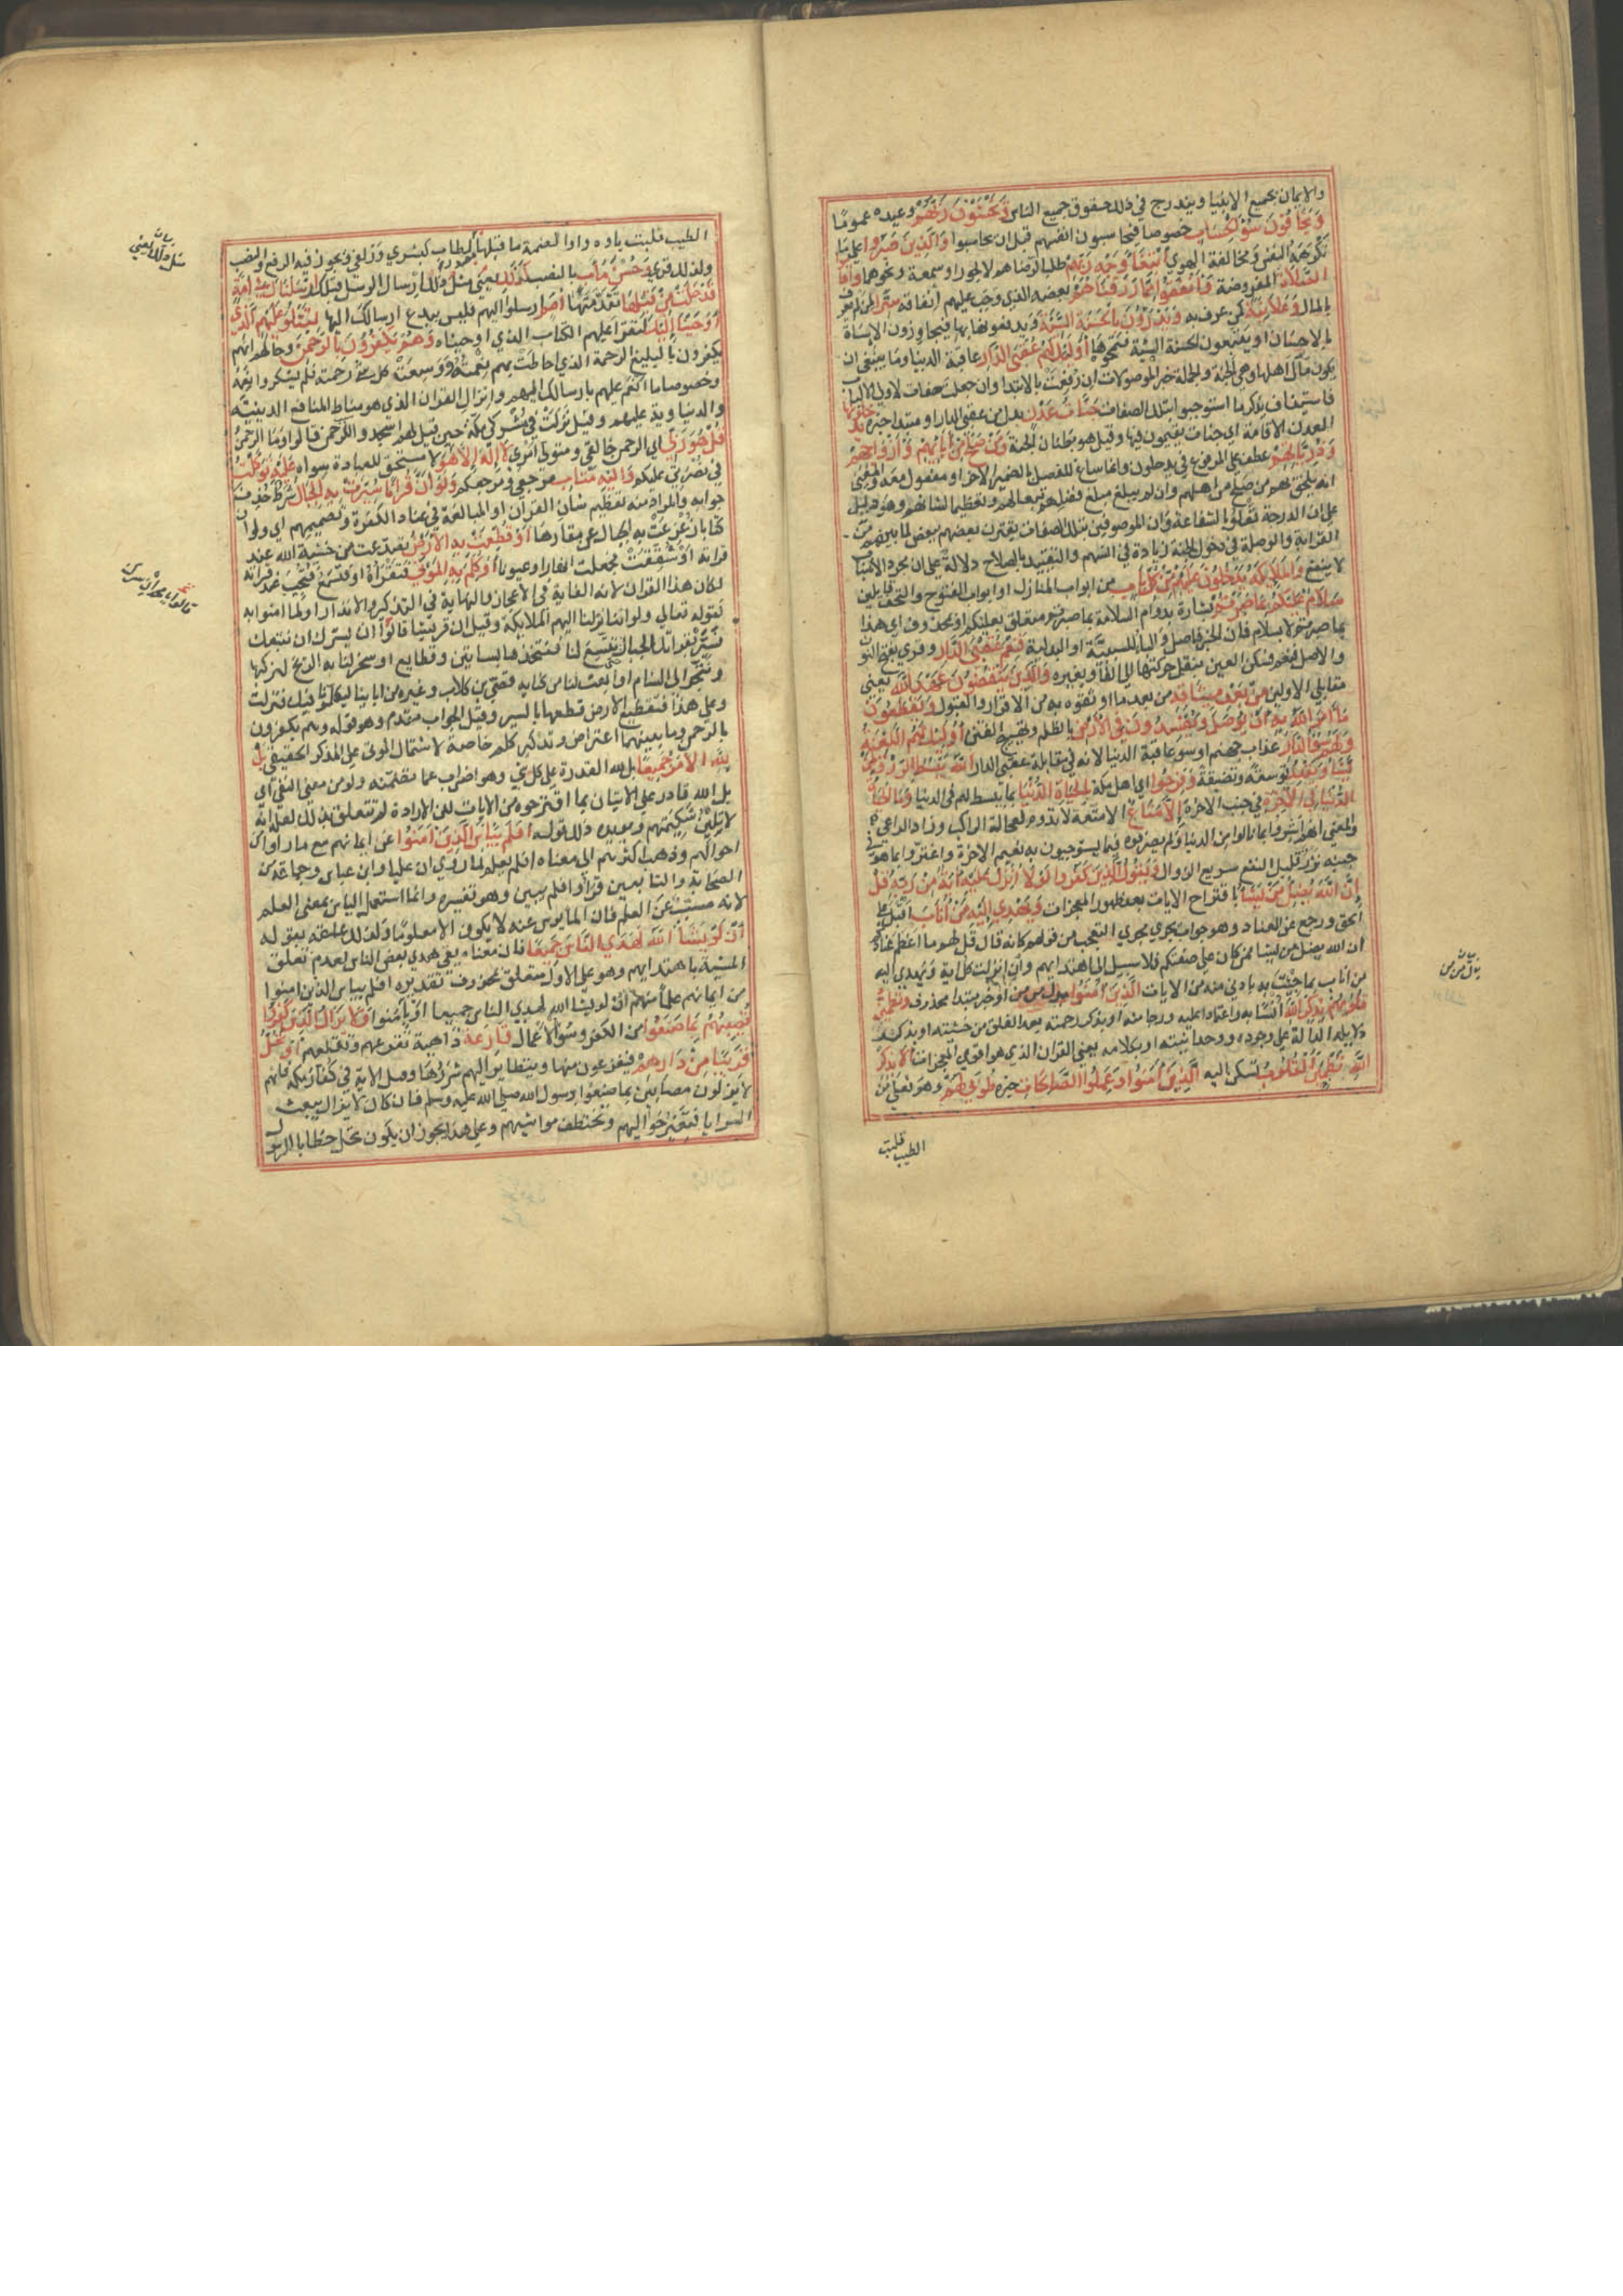 والايمان بجميع الانبيا ويندرج في ذلك حقوق جميع الناس وَيَخْشَوْنَ رَبَّهُمْ وعيده عموما
وَيَخَافُونَ سُوْٓ الْحِسَاب خصوصا فيحاسبون انفسهم قبل ان يحاسبوا وَالَّذِينَ صَبَروا على ما
تكرهه النفس ومخالفة الهوى ابْتِغَا وَجْهِ رَبِّهِمْ طلبا لرضاه لا لجور او سمعة ونحوهما وأقاموا
الصَّلاةَ المفروضة وَأَنْفَقُوا مِمَّا رَزَقْنَاهُمْ بعضه الذي وجب عليهم انفاقه سِرًّا لمن لم يعرف
بالمال وَعَلَانِيَةً لمن عرف به وَيَدْرَؤُنَ بِالْحَسَنَةِ السَّيِّئَةَ ويدفعونها بها فيجازون الاساة
بالاحسان او يتبعون الحسنة السيئة فتمحوها أُولَٰئِكَ لَهُمْ عُقْبَى الدَّار عاقبة الدنيا وما ينبغي ان
يكون مآل اهلها وهي الجنة والجملة خبر الموصولات ان رفعت بالابتدا وان جعلت صفات لاولي الالباب
فاستيناف بذكر ما استوجبوا بتلك الصفات جَنَّاتُ عَدْنٍ بدل من عقبى الدار او مبتدا خبره يَدْخُلُونَهَا
العدن الاقامة اي جنات يقيمون فيها وقيل هو بطنان الجنة وَمَنْ صَلَحَ مِنْ آبَائِهِمْ وَأَزْوَاجِهِمْ
وَذُرِّيَّاتِهِمْ عطف على المرفوع في يدخلون وانما ساغ للفصل بالضمير الاخر او مفعول معه والمعنى
انه يلحق بهم من صلح من اهلهم وان لم يبلغ مبلغ فضلهم تبعا لهم وتعظيما لشانهم وهو دليل
على ان الدرجة تعلو بالشفاعة وان الموصوفين بتلك الصفات يقترن بعضهم ببعض لما بينهم من
القرابة والوصلة في دخول الجنة زيادة في انسهم والتقييد بالصلاح دلالة على ان مجرد الانساب
لا ينفع وَالْمَلَائِكَةُ يَدْخُلُونَ عَلَيْهِمْ مِنْ كُلِّ بَابٍ من ابواب المنازل او ابواب الفتوح والتحف قايلين
سَلَامٌ عَلَيْكُمْ بِمَا صَبَرْتُمْ بشارة بدوام السلامة بما صبرتم متعلق بعليكم او بمحذوف اي هذا
بما صبرتم لا بسلام فان الخبر فاصل والبا للسببية او البدلية فَنِعْمَ عُقْبَى الدَّار وقرى بفتح النون
والاصل نعم فسكن العين بنقل حركتها الى الفا وبغيره وَالَّذِينَ يَنْقُضُونَ عَهْدَ اللَّه يعني
مقابلي الاولين مِنْ بَعْدِ مِيثَاقِهِ من بعد ما اوثقوه به من الاقرار والقبول وَيَقْطَعُونَ
مَا أَمَرَ اللَّهُ بِهِ أَنْ يُوصَلَ وَيُفْسِدُونَ فِي الْأَرْضِ بالظلم وتهييج الفتن أُولَٰئِكَ لَهُمُ اللَّعْنَةُ
وَلَهُمْ سُوءُ الدَّارِ عذاب جهنم او سو عاقبة الدنيا لانه في مقابلة عقبى الدار اللَّهُ يَبْسُطُ الرِّزْقَ لِمَنْ
يَشَا وَيَقْدِرُ يوسعه ويضيقه وَفَرِحُوا اي اهل مكة بِالْحَيَاةِ الدُّنْيَا بما بسط لهم في الدنيا وَمَا الْحَيَاةُ
الدُّنْيَا فِي الْآخِرَةِ في جنب الاخرة إِلَّا مَتَاعٌ الا متعة لا تدوم كعجالة الراكب وزاد الراعي
والمعنى انهم اشروا بما نالوا من الدنيا ولم يصرفوه فيما يستوجبون به نعيم الاخرة واغتروا بما هو في
جنبه نزر قليل النفع سريع الزوال وَيَقُولُ الَّذِينَ كَفَرُوا لَوْلَا أُنْزِلَ عَلَيْهِ آيَةٌ مِنْ رَبِّهِ قُلْ
إِنَّ اللَّهَ يُضِلُّ مَنْ يَشَا باقتراح الايات بعد ظهور المعجزات وَيَهْدِي إِلَيْهِ مَنْ أَنَابَ اقبل على
الحق ورجع عن العناد وهو جواب يجري مجرى التعجب من قولهم كانه قال قل لهم ما اعظم عنادكم
ان الله يضل من يشا ممن كان على صفتكم فلا سبيل الى اهتدايهم وان انزلت كل اية ويهدي اليه
من اناب بما جئت به بل بادنى منه من الايات الَّذِينَ آمَنُوا بدل من من او خبر مبتدا محذوف وَتَطْمَئِنُّ
قُلُوبُهُمْ بِذِكْرِ اللَّهِ انسا به واعتمادا عليه ورجا منه او بذكر رحمته بعد القلق من خشيته او بذكر
دلايله الدالة على وجوده ووحدانيته او بكلامه يعني القران الذي هو اقوى المعجزات أَلَا بِذِكْرِ
اللَّهِ تَطْمَئِنُّ الْقُلُوبُ تسكن اليه الَّذِينَ آمَنُوا وَعَمِلُوا الصَّالِحَاتِ خبره طُوبَى لَهُمْ وهو فعلى من
الطيب قلبت
الطيب قلبت ياوه واوا لضمة ما قبلها كبشرى وزلفى ويجوز فيه الرفع والنصب
ولذلك قرى وَحُسْنَ مَآبٍ بالنصب كَذَٰلِكَ يعني مثل ذلك ارسال الرسل قبلك أَرْسَلْنَاكَ فِي أُمَّةٍ
قَدْ خَلَتْ مِنْ قَبْلِهَا تقدمتها أُمَمٌ ارسلوا اليهم فليس ببدع ارسالك اليها لِتَتْلُوَ عَلَيْهِمُ الَّذِي
أَوْحَيْنَا إِلَيْكَ لتقرا عليهم الكتاب الذي اوحيناه وَهُمْ يَكْفُرُونَ بِالرَّحْمَنِ وحالهم انهم
يكفرون بالبليغ الرحمة الذي احاطت بهم نعمته ووسعت كل شي رحمته فلم يشكروا نعمه
وخصوصا ما انعم عليهم بارسالك اليهم وانزال القران الذي هو مناط المنافع الدينية
والدنياوية عليهم وقيل نزلت في مشركي مكة حين قيل لهم اسجدوا للرحمن قالوا وما الرحمن
قُلْ هُوَ رَبِّي اي الرحمن خالقي ومتولى امري لَا إِلَٰهَ إِلَّا هُوَ لا مستحق للعبادة سواه عَلَيْهِ تَوَكَّلْتُ
في نصرتي عليكم وَإِلَيْهِ مَتَابِ مرجعي ومرجعكم وَلَوْ أَنَّ قُرْآنًا سُيِّرَتْ بِهِ الْجِبَالُ شرط حذف
جوابه والمراد منه تعظيم شان القران او المبالغة في عناد الكفرة وتصميمهم اي ولو ان
كتابا زعزعت به الجبال عن مقارها أَوْ قُطِّعَتْ بِهِ الْأَرْضُ تصدعت من خشية الله عند
قراته او شققت فجعلت انهارا وعيونا أَوْ كُلِّمَ بِهِ الْمَوْتَى فتقراه او تسمع وتجيب عند قراته
لكان هذا القران لانه الغاية في الاعجاز والنهاية في التذكير والانذار او لما امنوا به
كقوله تعالى ولو اننا نزلنا اليهم الملايكة وقيل ان قريشا قالوا ان يسرك ان نتبعك
فسير بقرانك الجبال تتسع لنا فنتخذها بساتين وقطايع او سخر لنا به الريح لنركبها
ونتجر الى الشام او ابعث لنا من كلابه قصي بن كلاب وغيره من ابائنا ليكلمونا فيك فنزلت
وعلى هذا فتقطيع الارض قطعها بالسير وقيل الجواب متقدم وهو قوله وهم يكفرون
بالرحمن وما بينهما اعتراض وتذكير كلم خاصة لاشتمال الموتى على المذكر الحقيقي بَلْ
لِلَّهِ الْأَمْرُ جَمِيعًا بل لله القدرة على كل شي وهو اضراب عما تضمنته ولو من معنى النفي اي
بل الله قادر على الاتيان بما اقترحوه من الايات لكن الارادة لم تتعلق بذلك لعلمه انه
لا تلين شكيمتهم ويويده ذلك قوله أَفَلَمْ يَيْأَسِ الَّذِينَ آمَنُوا عن ايمانهم مع ما راوا من
احوالهم وذهب اكثرهم الى معناه افلم يعلم لما روي ان عليا وابن عباس وجماعة من
الصحابة والتابعين قراوا افلم يتبين وهو تفسيره وانما استعمل الياس بمعنى العلم
لانه مسبب عن العلم فان الميوس عنه لا يكون الا معلوما ولذلك علقه بقوله
أَنْ لَوْ يَشَا اللَّهُ لَهَدَى النَّاسَ جَمِيعًا فان معناه نفي هدى بعض الناس لعدم تعلق
المشية باهتدايهم وهو على الاول متعلق بمحذوف تقديره افلم يياس الذين امنوا
من ايمانهم علما منهم ان لو يشا الله لهدى الناس جميعا او بامنوا وَلَا يَزَالُ الَّذِينَ كَفَرُوا
تُصِيبُهُمْ بِمَا صَنَعُوا من الكفر وسو الاعمال قَارِعَةٌ داهية تقرعهم وتقلعهم أَوْ تَحُلُّ
قَرِيبًا مِنْ دَارِهِمْ فيفزعون منها ويتطاير اليهم شررها وقيل الاية في كفار مكة فانهم
لا يزالون مصابين بما صنعوا برسول الله صلى الله عليه وسلم فانه كان لا يزال يبعث
السرايا فتغير حواليهم وتختطف مواشيهم وعلى هذا يجوز ان يكون تحل خطابا للرسول